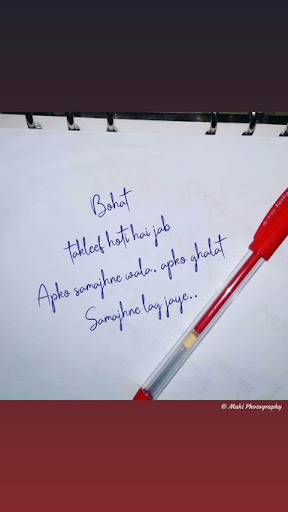 Bohat
takleef hoti hai jab
Apko samajhne wala, apko ghalat
Samajhne lag jaye..
© Mahi Photography